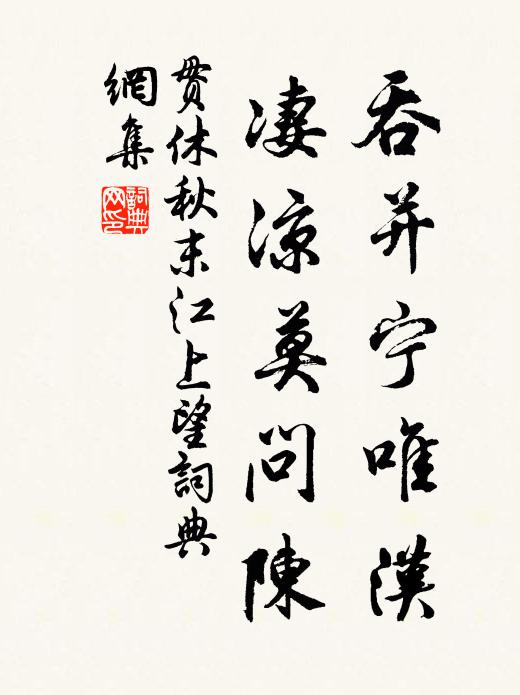 吞并宁唯漢
凄涼莫問陳
贯休秋末江上望詞典
網集
詞典
网印